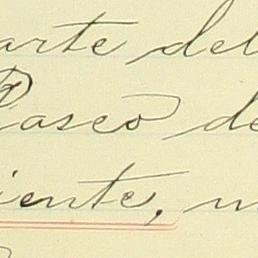 arte del
Paseo de
iente,